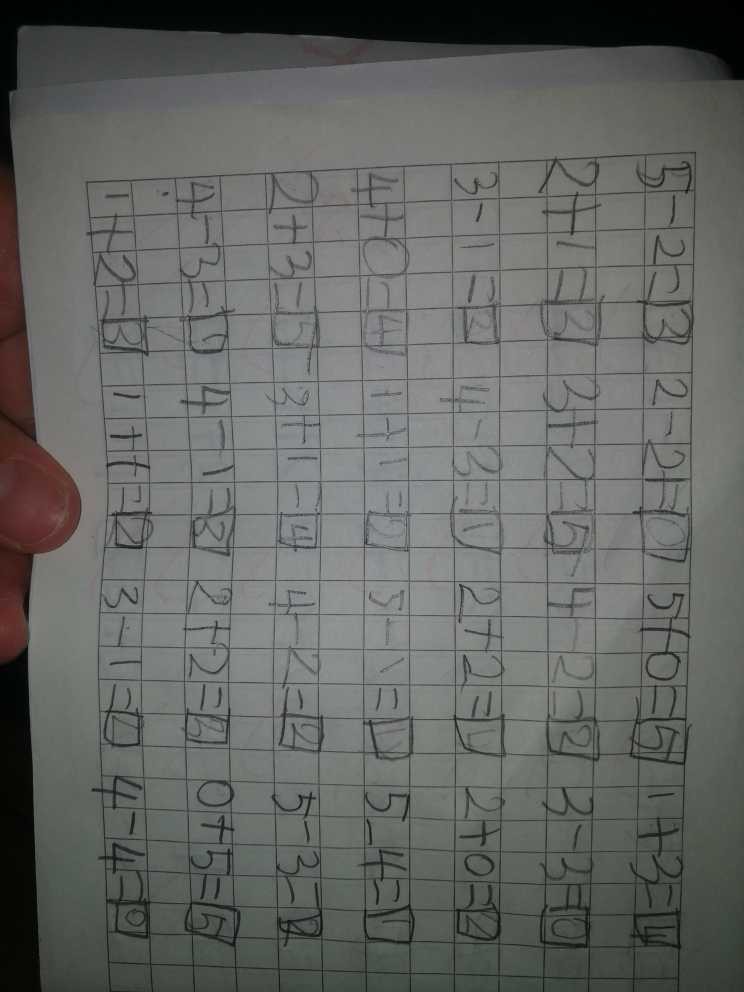 5-2=3 2-2=0 5+0=5 1+3=4
2+1=3 3+2=5 4-2=2 3-3=0
3-1=2 4-3=1 2+2=4 2+0=2
4+0=4 1+1=2 5-1=4 5-4=1
2+3=5 3+1=4 4-2=2 5-3=2
4-3=1 4-1=3 2+2= 0+5=5
1+2=3 1+1=2 3-1=2 4-4=0